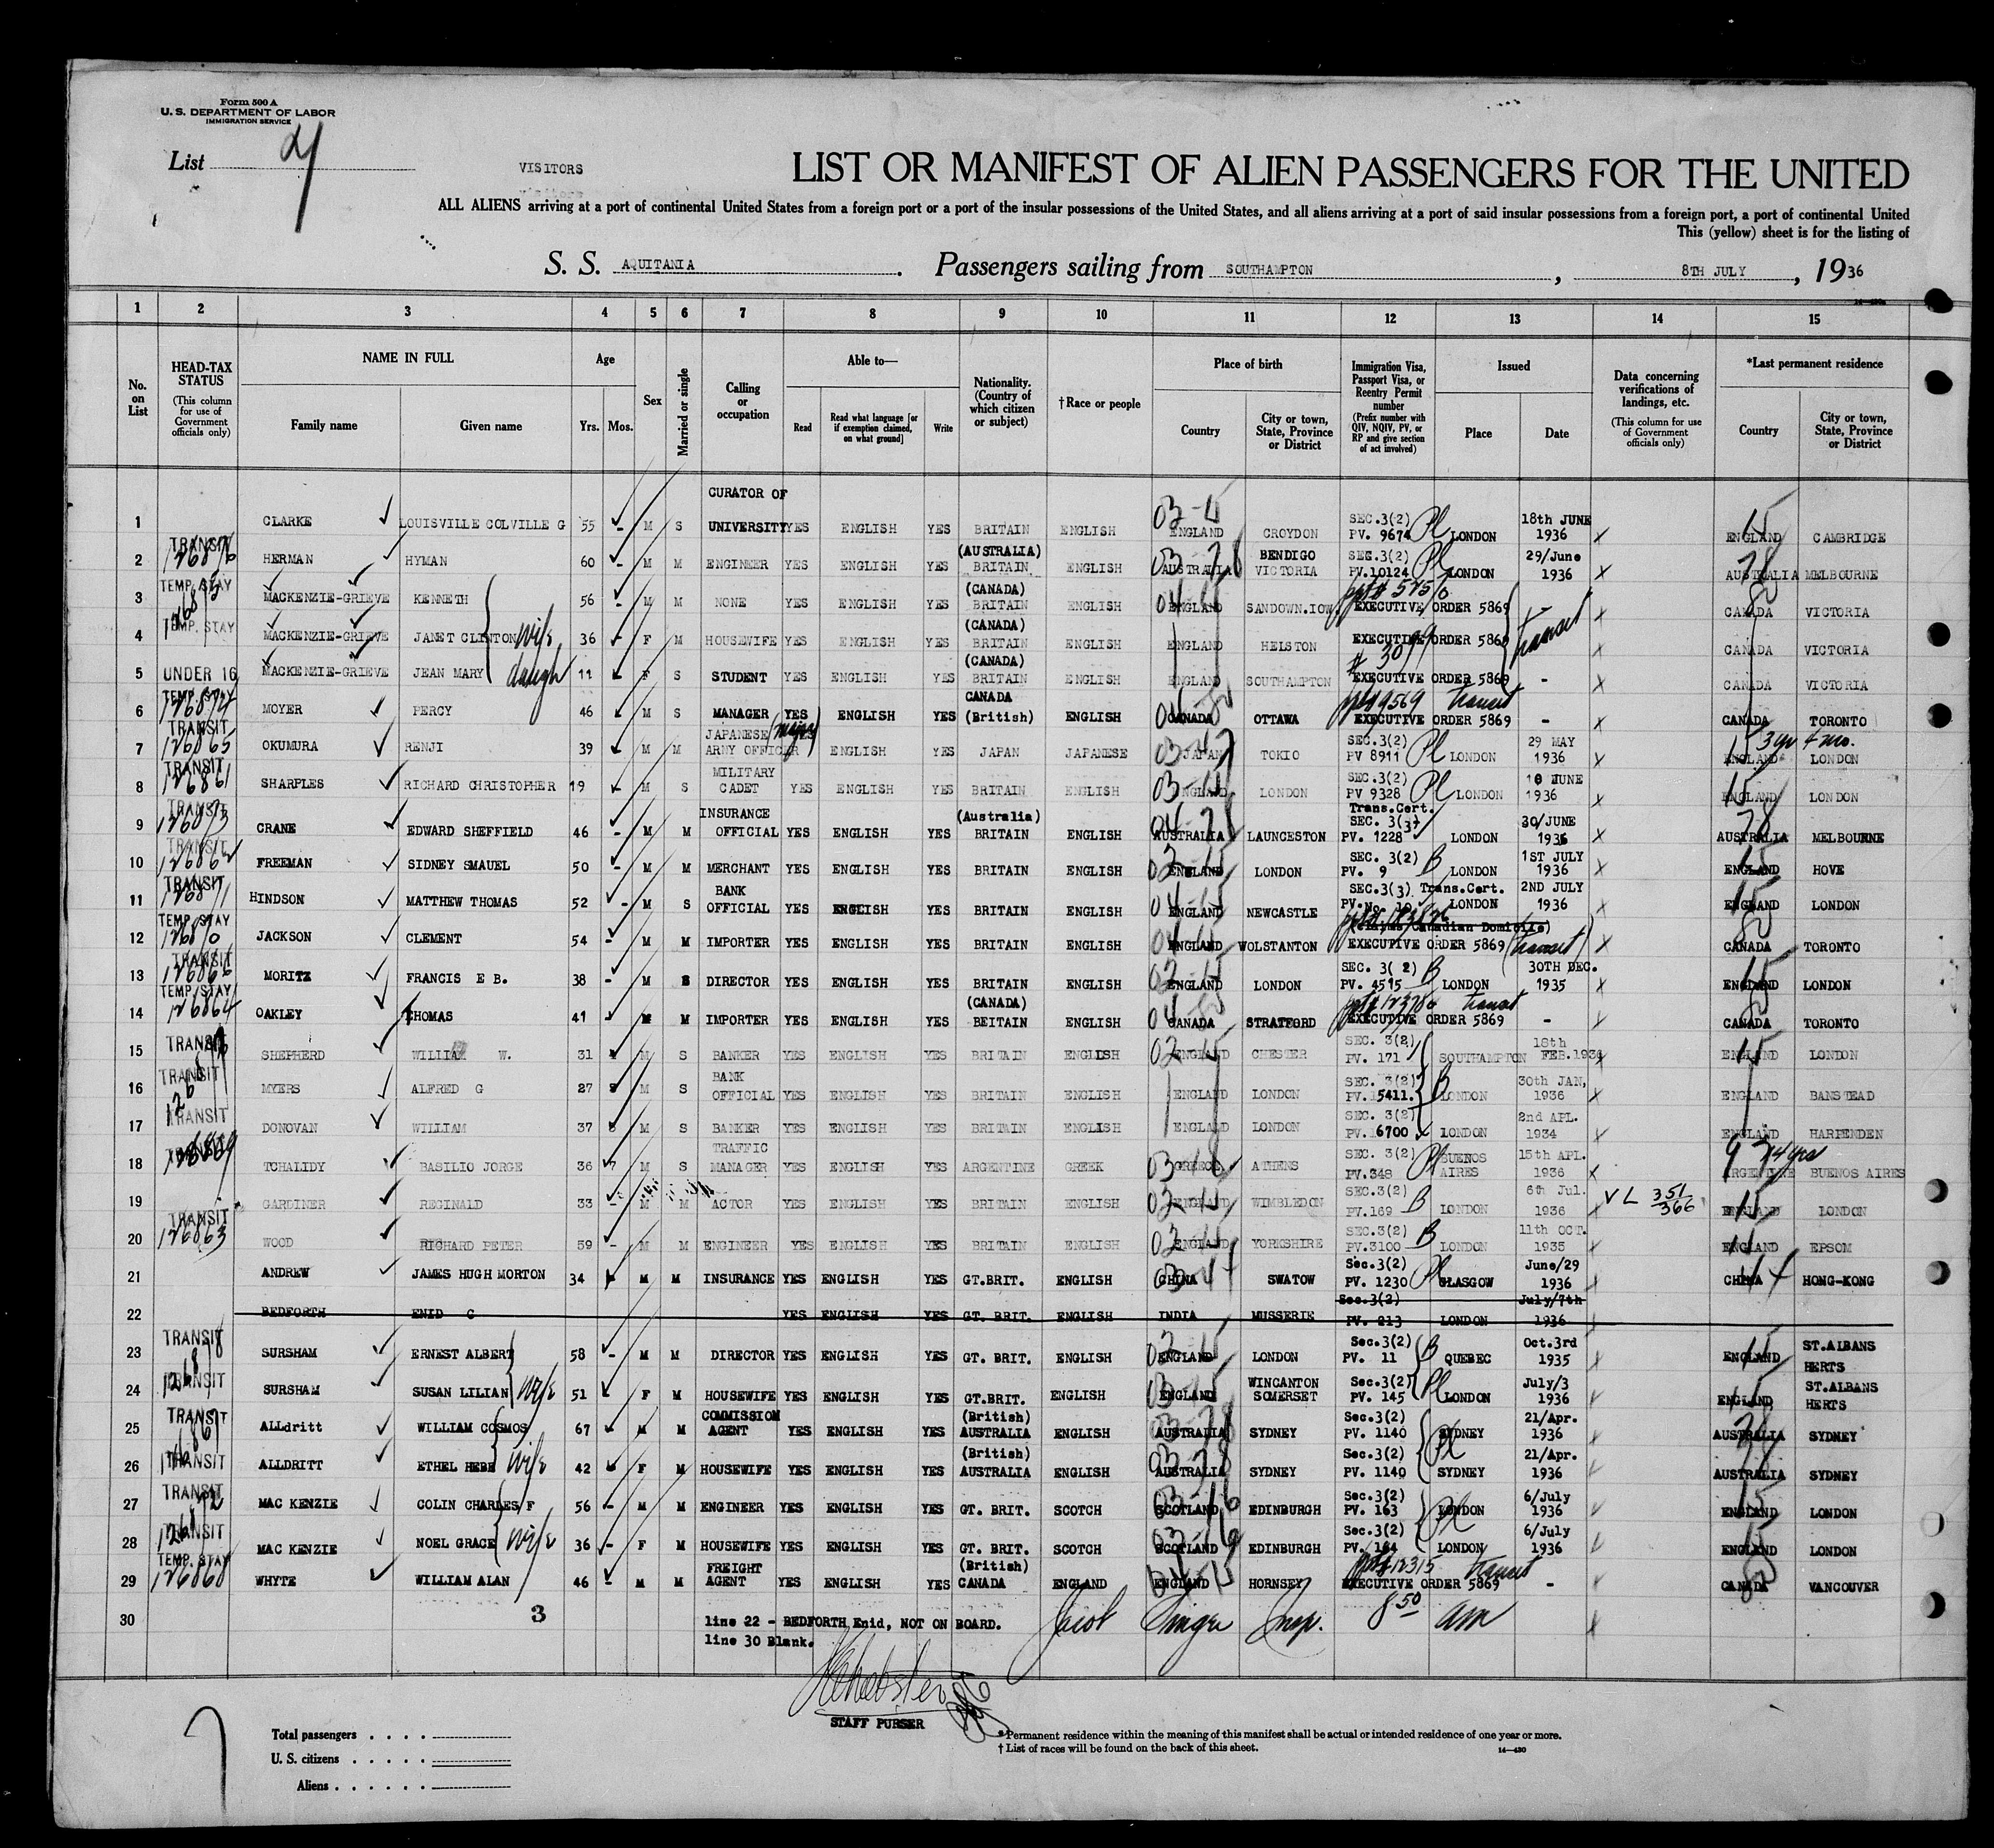 Form 500 A
U. S. DEPARTMENT OF LABOR
IMMIGRATION SERVICE
List 4
VISITORS
LIST OR MANIFEST OF ALIEN PASSENGERS FOR THE UNITED
ALL ALIENS arriving at a port of continental United States from a foreign port or a port of the insular possessions of the United States, and all aliens arriving at a port of said insular possessions from a foreign port, a port of continental United
This (yellow) sheet is for the listing of
S. S. AQUITANIA. Passengers sailing from SOUTHAMPTON, 8TH JULY, 1936
1 2 3 4 5 6 7 8 9 10 11 12 13 14 15
No. on List
HEAD-TAX STATUS (This column for use of Government officials only)
NAME IN FULL Family name Given name
Age Yrs. Mos.
Sex
Married or single
Calling or occupation
Able to— Read Read what language [or if exemption claimed, on what ground] Write
Nationality. (Country of which citizen or subject)
†Race or people
Place of birth Country City or town, State, Province or District
Immigration Visa, Passport Visa, or Reentry Permit number (Prefix number with QIV, NQIV, PV, or RP and give section of act involved)
Issued Place Date
Data concerning verifications of landings, etc. (This column for use of Government officials only)
*Last permanent residence Country City or town, State, Province or District
1 CLARKE LOUISVILLE COLVILLE G 55 - M S CURATOR OF UNIVERSITY YES ENGLISH YES BRITAIN ENGLISH ENGLAND CROYDON SEC.3(2) PV. 9674 LONDON 18th JUNE 1936 ENGLAND CAMBRIDGE
2 TRANSIT 126876 HERMAN HYMAN 60 - M M ENGINEER YES ENGLISH YES (AUSTRALIA) BRITAIN ENGLISH AUSTRALIA BENDIGO VICTORIA SEC.3(2) PV.10124 LONDON 29/June 1936 AUSTRALIA MELBOURNE
3 TEMP. STAY MACKENZIE-GRIEVE KENNETH 56 - M M NONE YES ENGLISH YES (CANADA) BRITAIN ENGLISH ENGLAND SANDOWN.IOW. EXECUTIVE ORDER 5869 - CANADA VICTORIA
4 TEMP. STAY MACKENZIE-GRIEVE JANET CLINTON wife 36 - F M HOUSEWIFE YES ENGLISH YES (CANADA) BRITAIN ENGLISH ENGLAND HELSTON EXECUTIVE ORDER 5869 transit CANADA VICTORIA
5 UNDER 16 MACKENZIE-GRIEVE JEAN MARY daugh 11 F S STUDENT YES ENGLISH YES (CANADA) BRITAIN ENGLISH ENGLAND SOUTHAMPTON EXECUTIVE ORDER 5869 - CANADA VICTORIA
6 TEMP. STAY 126874 MOYER PERCY 46 M S MANAGER YES ENGLISH YES CANADA (British) ENGLISH CANADA OTTAWA EXECUTIVE ORDER 5869 transit - CANADA TORONTO
7 TRANSIT 126865 OKUMURA RENJI 39 M M JAPANESE (major) ARMY OFFICER YES ENGLISH YES JAPAN JAPANESE JAPAN TOKIO SEC.3(2) PV 8911 LONDON 29 MAY 1936 3 yr 4 mo. ENGLAND LONDON
8 TRANSIT 126861 SHARPLES RICHARD CHRISTOPHER 19 M S MILITARY CADET YES ENGLISH YES BRITAIN ENGLISH ENGLAND LONDON SEC.3(2) PV 9328 LONDON 18 JUNE 1936 ENGLAND LONDON
9 TRANSIT 126873 CRANE EDWARD SHEFFIELD 46 - M M INSURANCE OFFICIAL YES ENGLISH YES (Australia) BRITAIN ENGLISH AUSTRALIA LAUNCESTON Trans.Cert. SEC. 3(3) PV. 1228 LONDON 30/JUNE 1936 AUSTRALIA MELBOURNE
10 TRANSIT 126862 FREEMAN SIDNEY SMAUEL 50 - M M MERCHANT YES ENGLISH YES BRITAIN ENGLISH ENGLAND LONDON SEC. 3(2) PV. 9 LONDON 1ST JULY 1936 ENGLAND HOVE
11 TRANSIT HINDSON MATTHEW THOMAS 52 - M S BANK OFFICIAL YES ENGLISH YES BRITAIN ENGLISH ENGLAND NEWCASTLE SEC.3(3) Trans.Cert. PV.No. 10 LONDON 2ND JULY 1936 ENGLAND LONDON
12 TEMP. STAY JACKSON CLEMENT 54 - M M IMPORTER YES ENGLISH YES BRITAIN ENGLISH ENGLAND WOLSTANTON Canadian Domicile) EXECUTIVE ORDER 5869 (transit) CANADA TORONTO
13 TRANSIT 126866 MORITZ FRANCIS E B. 38 - M S DIRECTOR YES ENGLISH YES BRITAIN ENGLISH ENGLAND LONDON SEC. 3( 2) PV. 4515 LONDON 30TH DEC. 1935 ENGLAND LONDON
14 TEMP. STAY 126864 OAKLEY THOMAS 41 - M M IMPORTER YES ENGLISH YES (CANADA) BEITAIN ENGLISH CANADA STRATFORD EXECUTIVE ORDER 5869 transit - CANADA TORONTO
15 TRANSIT SHEPHERD WILLIAM W. 31 M S BANKER YES ENGLISH YES BRITAIN ENGLISH ENGLAND CHESTER SEC. 3(2) PV. 171 SOUTHAMPTON 18th FEB.1936 ENGLAND LONDON
16 TRANSIT MYERS ALFRED G 27 M S BANK OFFICIAL YES ENGLISH YES BRITAIN ENGLISH ENGLAND LONDON SEC. 3(2) PV.15411. LONDON 30th JAN, 1936 ENGLAND BANSTEAD
17 TRANSIT DONOVAN WILLIAM 37 M S BANKER YES ENGLISH YES BRITAIN ENGLISH ENGLAND LONDON SEC. 3(2) PV.16700 LONDON 2nd APL. 1934 ENGLAND HARPENDEN
18 TRANSIT TCHALIDY BASILIO JORGE 36 M S TRAFFIC MANAGER YES ENGLISH YES ARGENTINE GREEK GREECE ATHENS SEC. 3(2) PV.348 BUENOS AIRES 15th APL. 1936 ARGENTINE BUENOS AIRES
19 GARDINER REGINALD 33 - M M ACTOR YES ENGLISH YES BRITAIN ENGLISH ENGLAND WIMBLEDON SEC.3(2) PV.169 LONDON 6th Jul. 1936 VL 351/366 ENGLAND LONDON
20 TRANSIT 126863 WOOD RICHARD PETER 59 - M M ENGINEER YES ENGLISH YES BRITAIN ENGLISH ENGLAND YORKSHIRE SEC.3(2) PV.3100 LONDON 11th OCT. 1935 ENGLAND EPSOM
21 ANDREW JAMES HUGH MORTON 34 M M INSURANCE YES ENGLISH YES GT.BRIT. ENGLISH CHINA SWATOW Sec.3(2) PV. 1230 GLASGOW June/29 1936 CHINA HONG-KONG
22 BEDFORTH ENID C YES ENGLISH YES GT. BRIT. ENGLISH INDIA MUSSERIE Sec.3(2) PV. 213 LONDON July/7th 1936
23 TRANSIT SURSHAM ERNEST ALBERT 58 - M M DIRECTOR YES ENGLISH YES GT. BRIT. ENGLISH ENGLAND LONDON Sec.3(2) PV. 11 QUEBEC Oct.3rd 1935 ENGLAND ST.ALBANS HERTS
24 TRANSIT SURSHAM SUSAN LILIAN wife 51 F M HOUSEWIFE YES ENGLISH YES GT.BRIT. ENGLISH ENGLAND WINCANTON SOMERSET Sec.3(2) PV. 145 LONDON July/3 1936 ENGLAND ST.ALBANS HERTS
25 TRANSIT ALLdritt WILLIAM COSMOS 67 - M M COMMISSION AGENT YES ENGLISH YES (British) AUSTRALIA ENGLISH AUSTRALIA SYDNEY Sec.3(2) PV. 1140 SYDNEY 21/Apr. 1936 AUSTRALIA SYDNEY
26 TRANSIT ALLDRITT ETHEL HEBE wife 42 F M HOUSEWIFE YES ENGLISH YES (British) AUSTRALIA ENGLISH AUSTRALIA SYDNEY Sec.3(2) PV. 1140 SYDNEY 21/Apr. 1936 AUSTRALIA SYDNEY
27 TRANSIT MAC KENZIE COLIN CHARLES F 56 - M M ENGINEER YES ENGLISH YES GT. BRIT. SCOTCH SCOTLAND EDINBURGH Sec.3(2) PV. 163 LONDON 6/July 1936 ENGLAND LONDON
28 TRANSIT MAC KENZIE NOEL GRACE wife 36 - F M HOUSEWIFE YES ENGLISH YES GT. BRIT. SCOTCH SCOTLAND EDINBURGH Sec.3(2) PV. 164 LONDON 6/July 1936 ENGLAND LONDON
29 TEMP. STAY 126868 WHYTE WILLIAM ALAN 46 - M M FREIGHT AGENT YES ENGLISH YES (British) CANADA ENGLAND ENGLAND HORNSEY EXECUTIVE ORDER 5869 transit - CANADA VANCOUVER
30 3 line 22 - BEDFORTH Enid, NOT ON BOARD. Jacob Singer Insp. 8 50 am
line 30 Blank.
STAFF PURSER
Total passengers
U. S. citizens
Aliens
* Permanent residence within the meaning of this manifest shall be actual or intended residence of one year or more.
† List of races will be found on the back of this sheet.
14—430